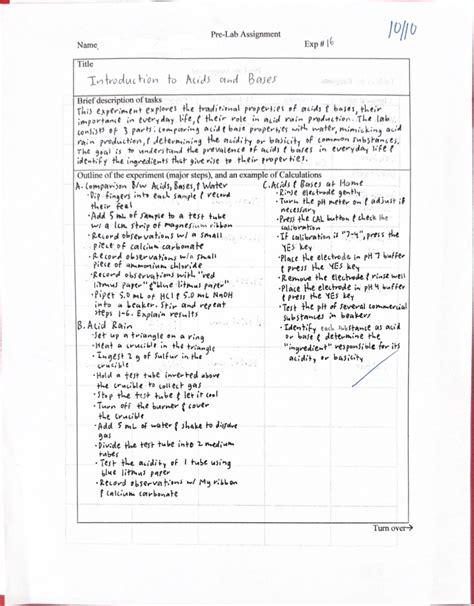 10/10
Pre-Lab Assignment
Name
Exp # 16
Title
Introduction to Acids and Bases
Brief description of tasks
This experiment explores the traditional properties of acids & bases, their
importance in everyday life, & their role in acid rain production. The lab
consists of 3 parts: comparing acid & base properties with water, mimicking acid
rain production, & determining the acidity or basicity of common substances.
The goal is to understand the prevalence of acids & bases in everyday life &
identify the ingredients that give rise to their properties.
Outline of the experiment (major steps), and an example of Calculations
A. Comparison B/w Acids, Bases, & Water
• Dip fingers into each sample & record
their feel
• Add 5 mL of sample to a test tube
w/ a 1cm strip of magnesium ribbon
• Record observations w/ a small
piece of calcium carbonate
• Record observations w/ a small
piece of ammonium chloride
• Record observations with "red
litmus paper" & "blue litmus paper"
• Pipet 5.0 mL of HCl & 5.0 mL NaOH
into a beaker. Stir and repeat
steps 1-6. Explain results
B. Acid Rain
• Set up a triangle on a ring
• Heat a crucible in the triangle
• Ingest 2 g of Sulfur in the
crucible
• Hold a test tube inverted above
the crucible to collect gas
• Stop the test tube & let it cool
• Turn off the burner & cover
the crucible
• Add 5 mL of water & shake to dissolve
gas
• Divide the test tube into 2 medium
tubes
• Test the acidity of 1 tube using
blue litmus paper
• Record observations w/ Mg ribbon
& calcium carbonate
C. Acids & Bases at Home
• Rinse electrode gently
• Turn the pH meter on & adjust if
necessary
• Press the CAL button & check the
calibration
• If calibration is "7-4", press the
YES key
• Place the electrode in pH 7 buffer
& press the YES key
• Remove the electrode & rinse well
• Place the electrode in pH 4 buffer
& press the YES key
• Test the pH of several commercial
substances in beakers
• Identify each substance as acid
or base & determine the
"ingredient" responsible for its
acidity or basicity
Turn over→